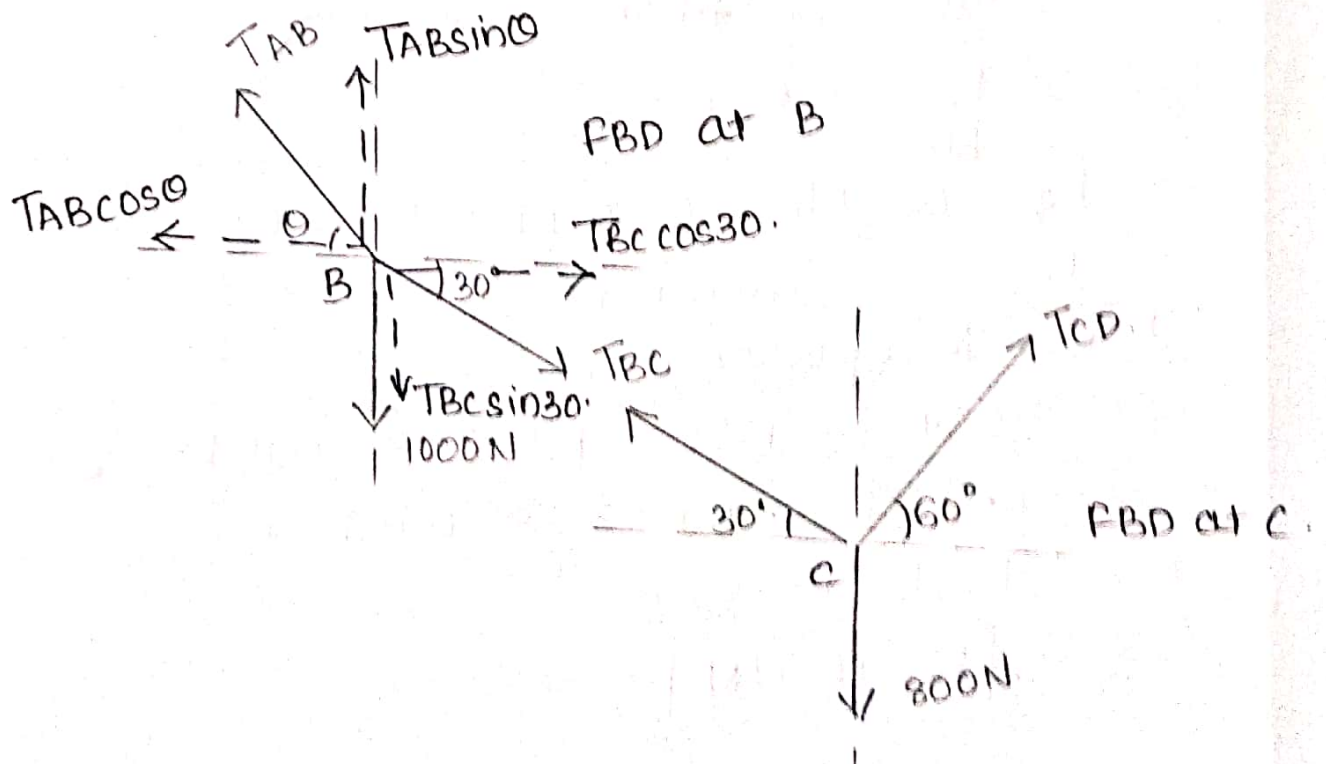 TAB
TABsinθ
FBD at B
TABcosθ
θ
TBC cos30.
B
30°
TBC
TBC sin30.
1000N
TCD.
30°
60°
FBD at C.
C
800N